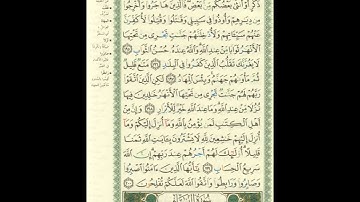 ذَكَرٍ أَوْ أُنثَىٰ بَعْضُكُم مِّنۢ بَعْضٍ فَٱلَّذِينَ هَاجَرُوا۟ وَأُخْرِجُوا۟
مِن دِيَٰرِهِمْ وَأُوذُوا۟ فِى سَبِيلِى وَقَٰتَلُوا۟ وَقُتِلُوا۟ لَأُكَفِّرَنَّ
عَنْهُمْ سَيِّـَٔاتِهِمْ وَلَأُدْخِلَنَّهُمْ جَنَّٰتٍ تَجْرِى مِن تَحْتِهَا
ٱلْأَنْهَٰرُ ثَوَابًا مِّنْ عِندِ ٱللَّهِ وَٱللَّهُ عِندَهُۥ حُسْنُ ٱلثَّوَابِ ١٩٥
لَا يَغُرَّنَّكَ تَقَلُّبُ ٱلَّذِينَ كَفَرُوا۟ فِى ٱلْبِلَٰدِ ١٩٦ مَتَٰعٌ قَلِيلٌ
ثُمَّ مَأْوَىٰهُمْ جَهَنَّمُ وَبِئْسَ ٱلْمِهَادُ ١٩٧ لَٰكِنِ ٱلَّذِينَ ٱتَّقَوْا۟
رَبَّهُمْ لَهُمْ جَنَّٰتٌ تَجْرِى مِن تَحْتِهَا ٱلْأَنْهَٰرُ خَٰلِدِينَ فِيهَا
نُزُلًا مِّنْ عِندِ ٱللَّهِ وَمَا عِندَ ٱللَّهِ خَيْرٌ لِّلْأَبْرَارِ ١٩٨ وَإِنَّ مِنْ
أَهْلِ ٱلْكِتَٰبِ لَمَن يُؤْمِنُ بِٱللَّهِ وَمَآ أُنزِلَ إِلَيْكُمْ وَمَآ
أُنزِلَ إِلَيْهِمْ خَٰشِعِينَ لِلَّهِ لَا يَشْتَرُونَ بِـَٔايَٰتِ ٱللَّهِ ثَمَنًا
قَلِيلًا أُو۟لَٰٓئِكَ لَهُمْ أَجْرُهُمْ عِندَ رَبِّهِمْ إِنَّ ٱللَّهَ
سَرِيعُ ٱلْحِسَابِ ١٩٩ يَٰٓأَيُّهَا ٱلَّذِينَ ءَامَنُوا۟ ٱصْبِرُوا۟
وَصَابِرُوا۟ وَرَابِطُوا۟ وَٱتَّقُوا۟ ٱللَّهَ لَعَلَّكُمْ تُفْلِحُونَ ٢٠٠